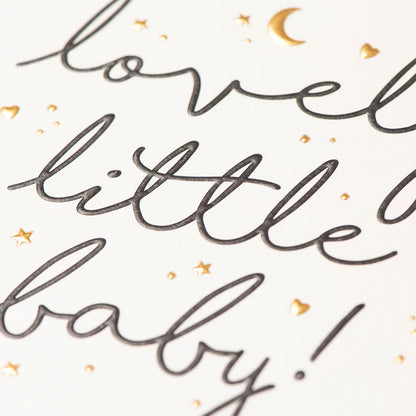 lovel
little
baby!